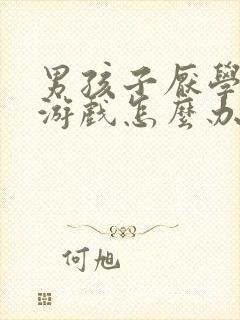 男孩子厭學
游戲怎麼办
何旭